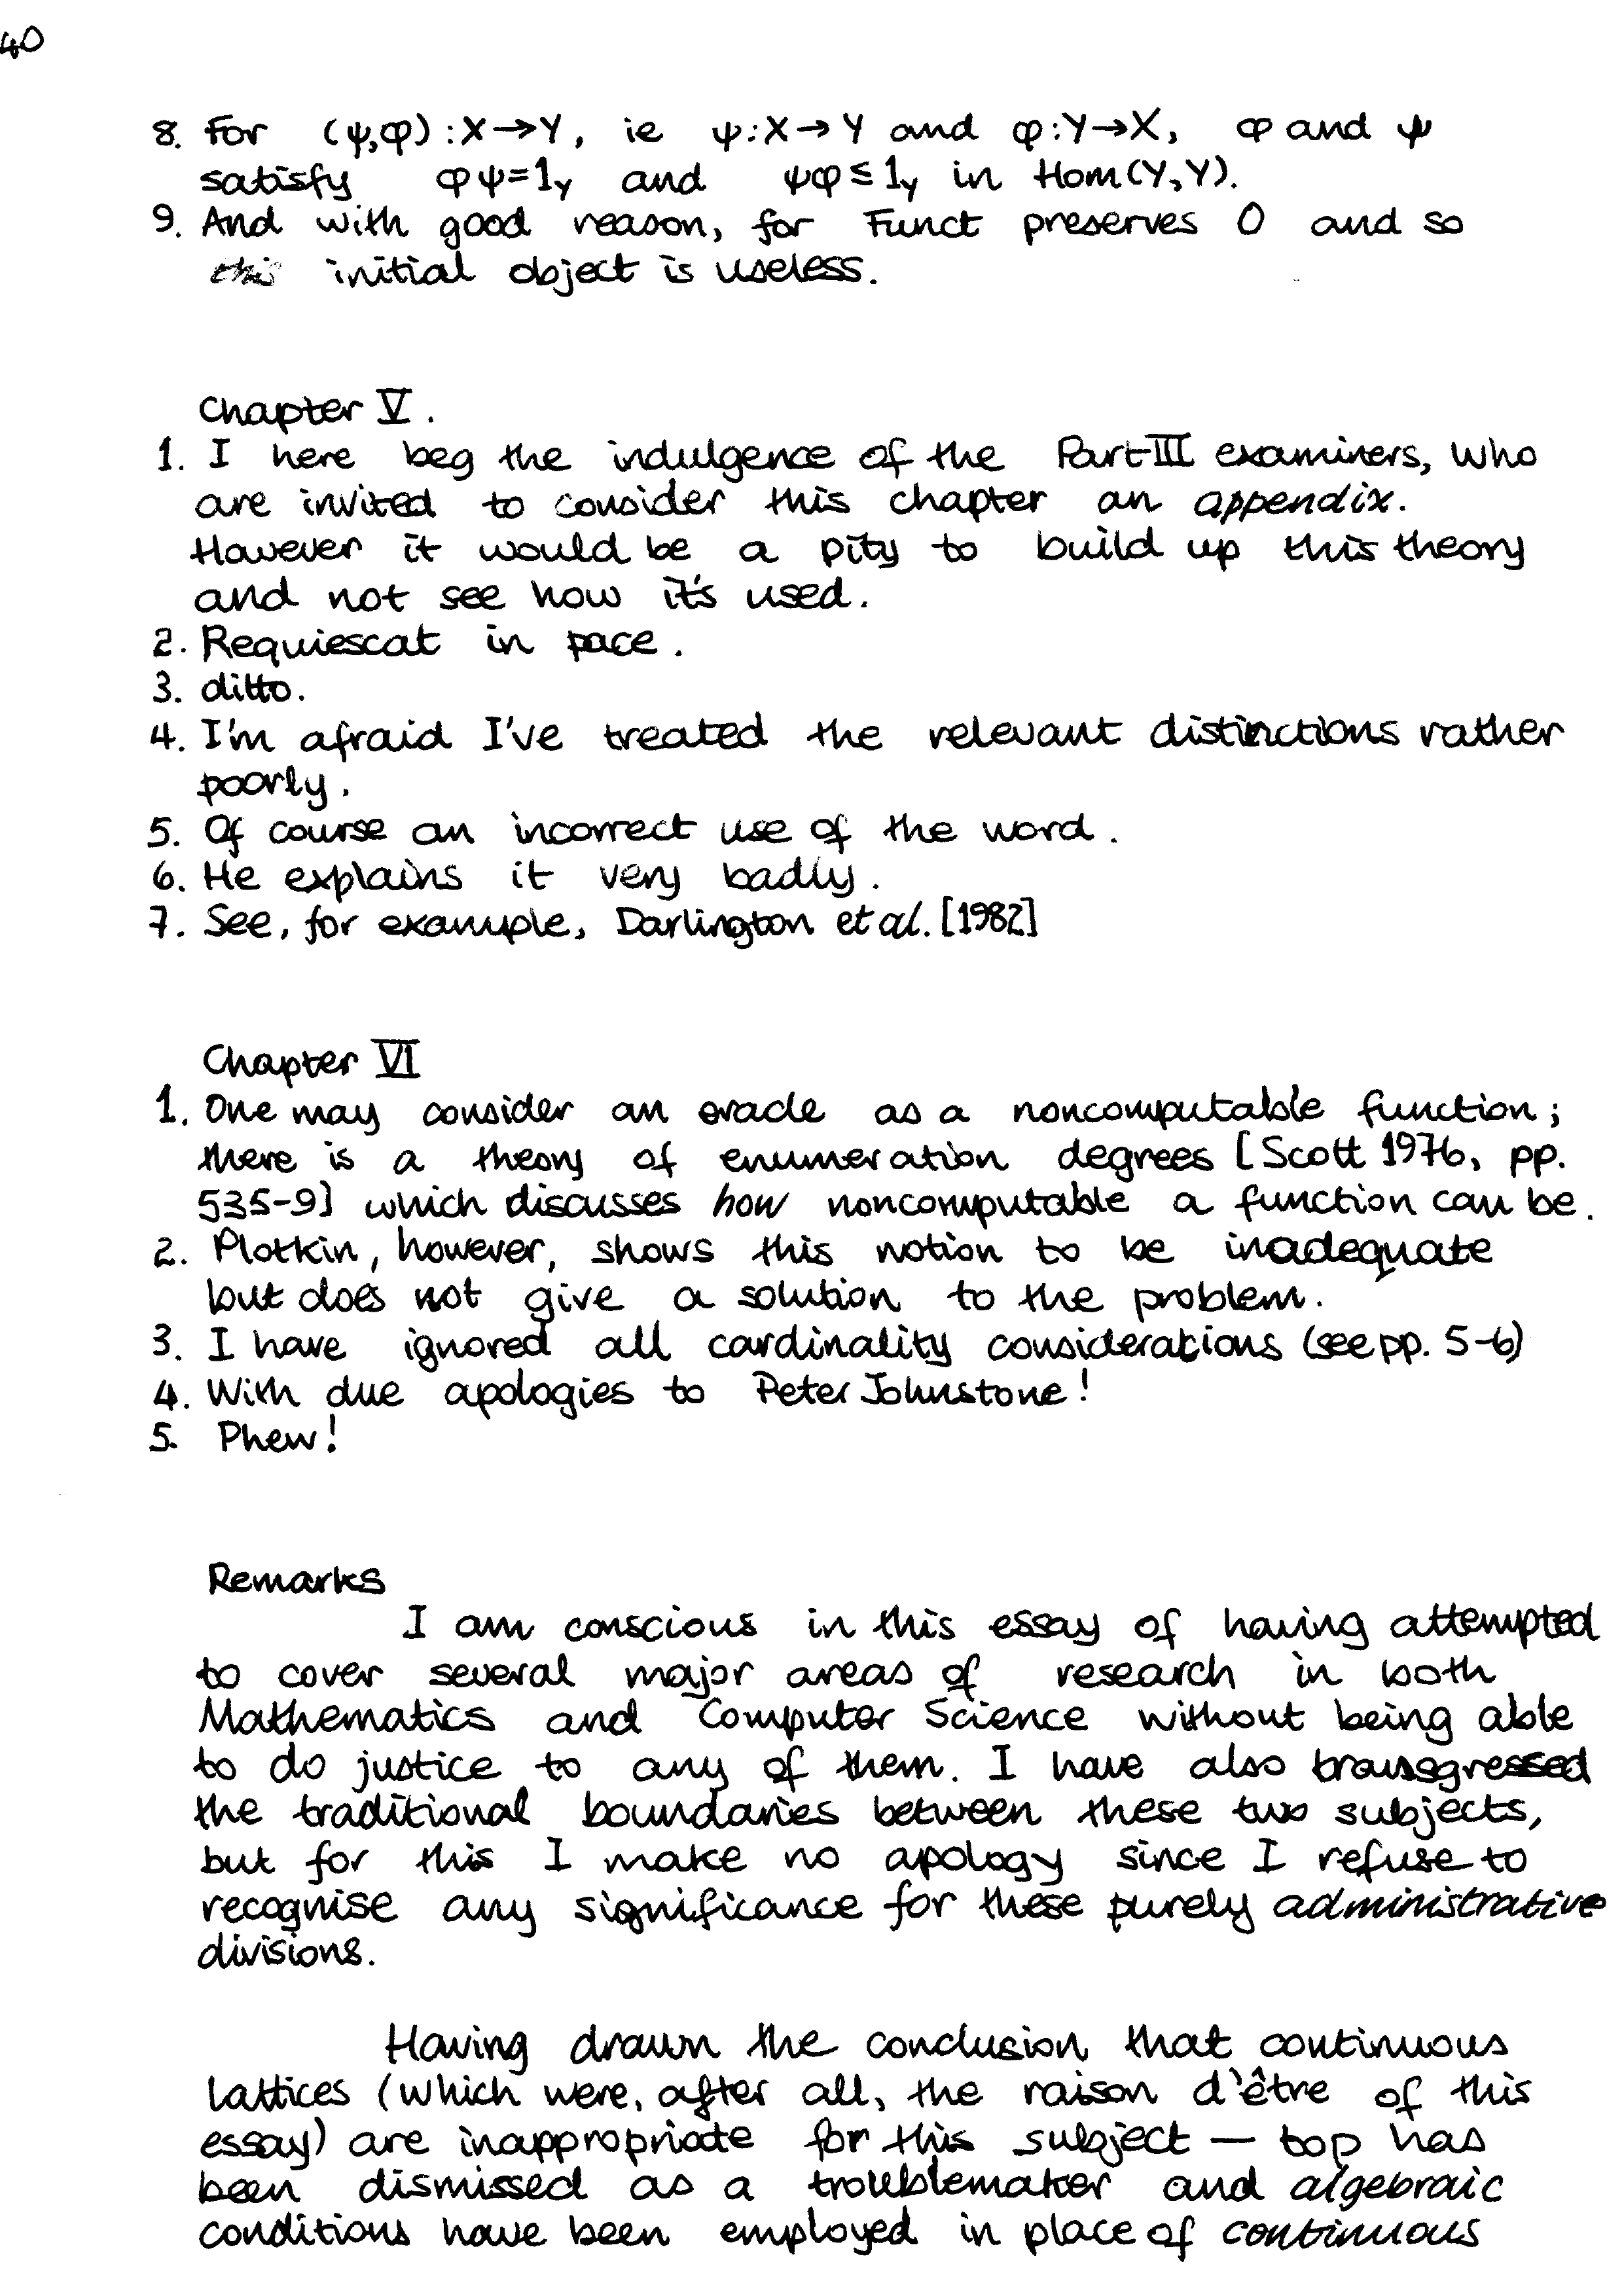 40
8. For (ψ,φ):X→Y, ie ψ:X→Y and φ:Y→X, φ and ψ
satisfy φψ=1_Y and ψφ≤1_Y in Hom(Y,Y).
9. And with good reason, for Funct preserves 0 and so
this initial object is useless.
Chapter V.
1. I here beg the indulgence of the Part III examiners, who
are invited to consider this chapter an appendix.
However it would be a pity to build up this theory
and not see how it's used.
2. Requiescat in pace.
3. ditto.
4. I'm afraid I've treated the relevant distinctions rather
poorly.
5. Of course an incorrect use of the word.
6. He explains it very badly.
7. See, for example, Darlington et al. [1982]
Chapter VI
1. One may consider an oracle as a noncomputable function;
there is a theory of enumeration degrees [Scott 1976, pp.
535-9] which discusses how noncomputable a function can be.
2. Plotkin, however, shows this notion to be inadequate
but does not give a solution to the problem.
3. I have ignored all cardinality considerations (see pp. 5-6)
4. With due apologies to Peter Johnstone!
5. Phew!
Remarks
I am conscious in this essay of having attempted
to cover several major areas of research in both
Mathematics and Computer Science without being able
to do justice to any of them. I have also transgressed
the traditional boundaries between these two subjects,
but for this I make no apology since I refuse to
recognise any significance for these purely administrative
divisions.
Having drawn the conclusion that continuous
lattices (which were, after all, the raison d'être of this
essay) are inappropriate for this subject — top has
been dismissed as a troublemaker and algebraic
conditions have been employed in place of continuous